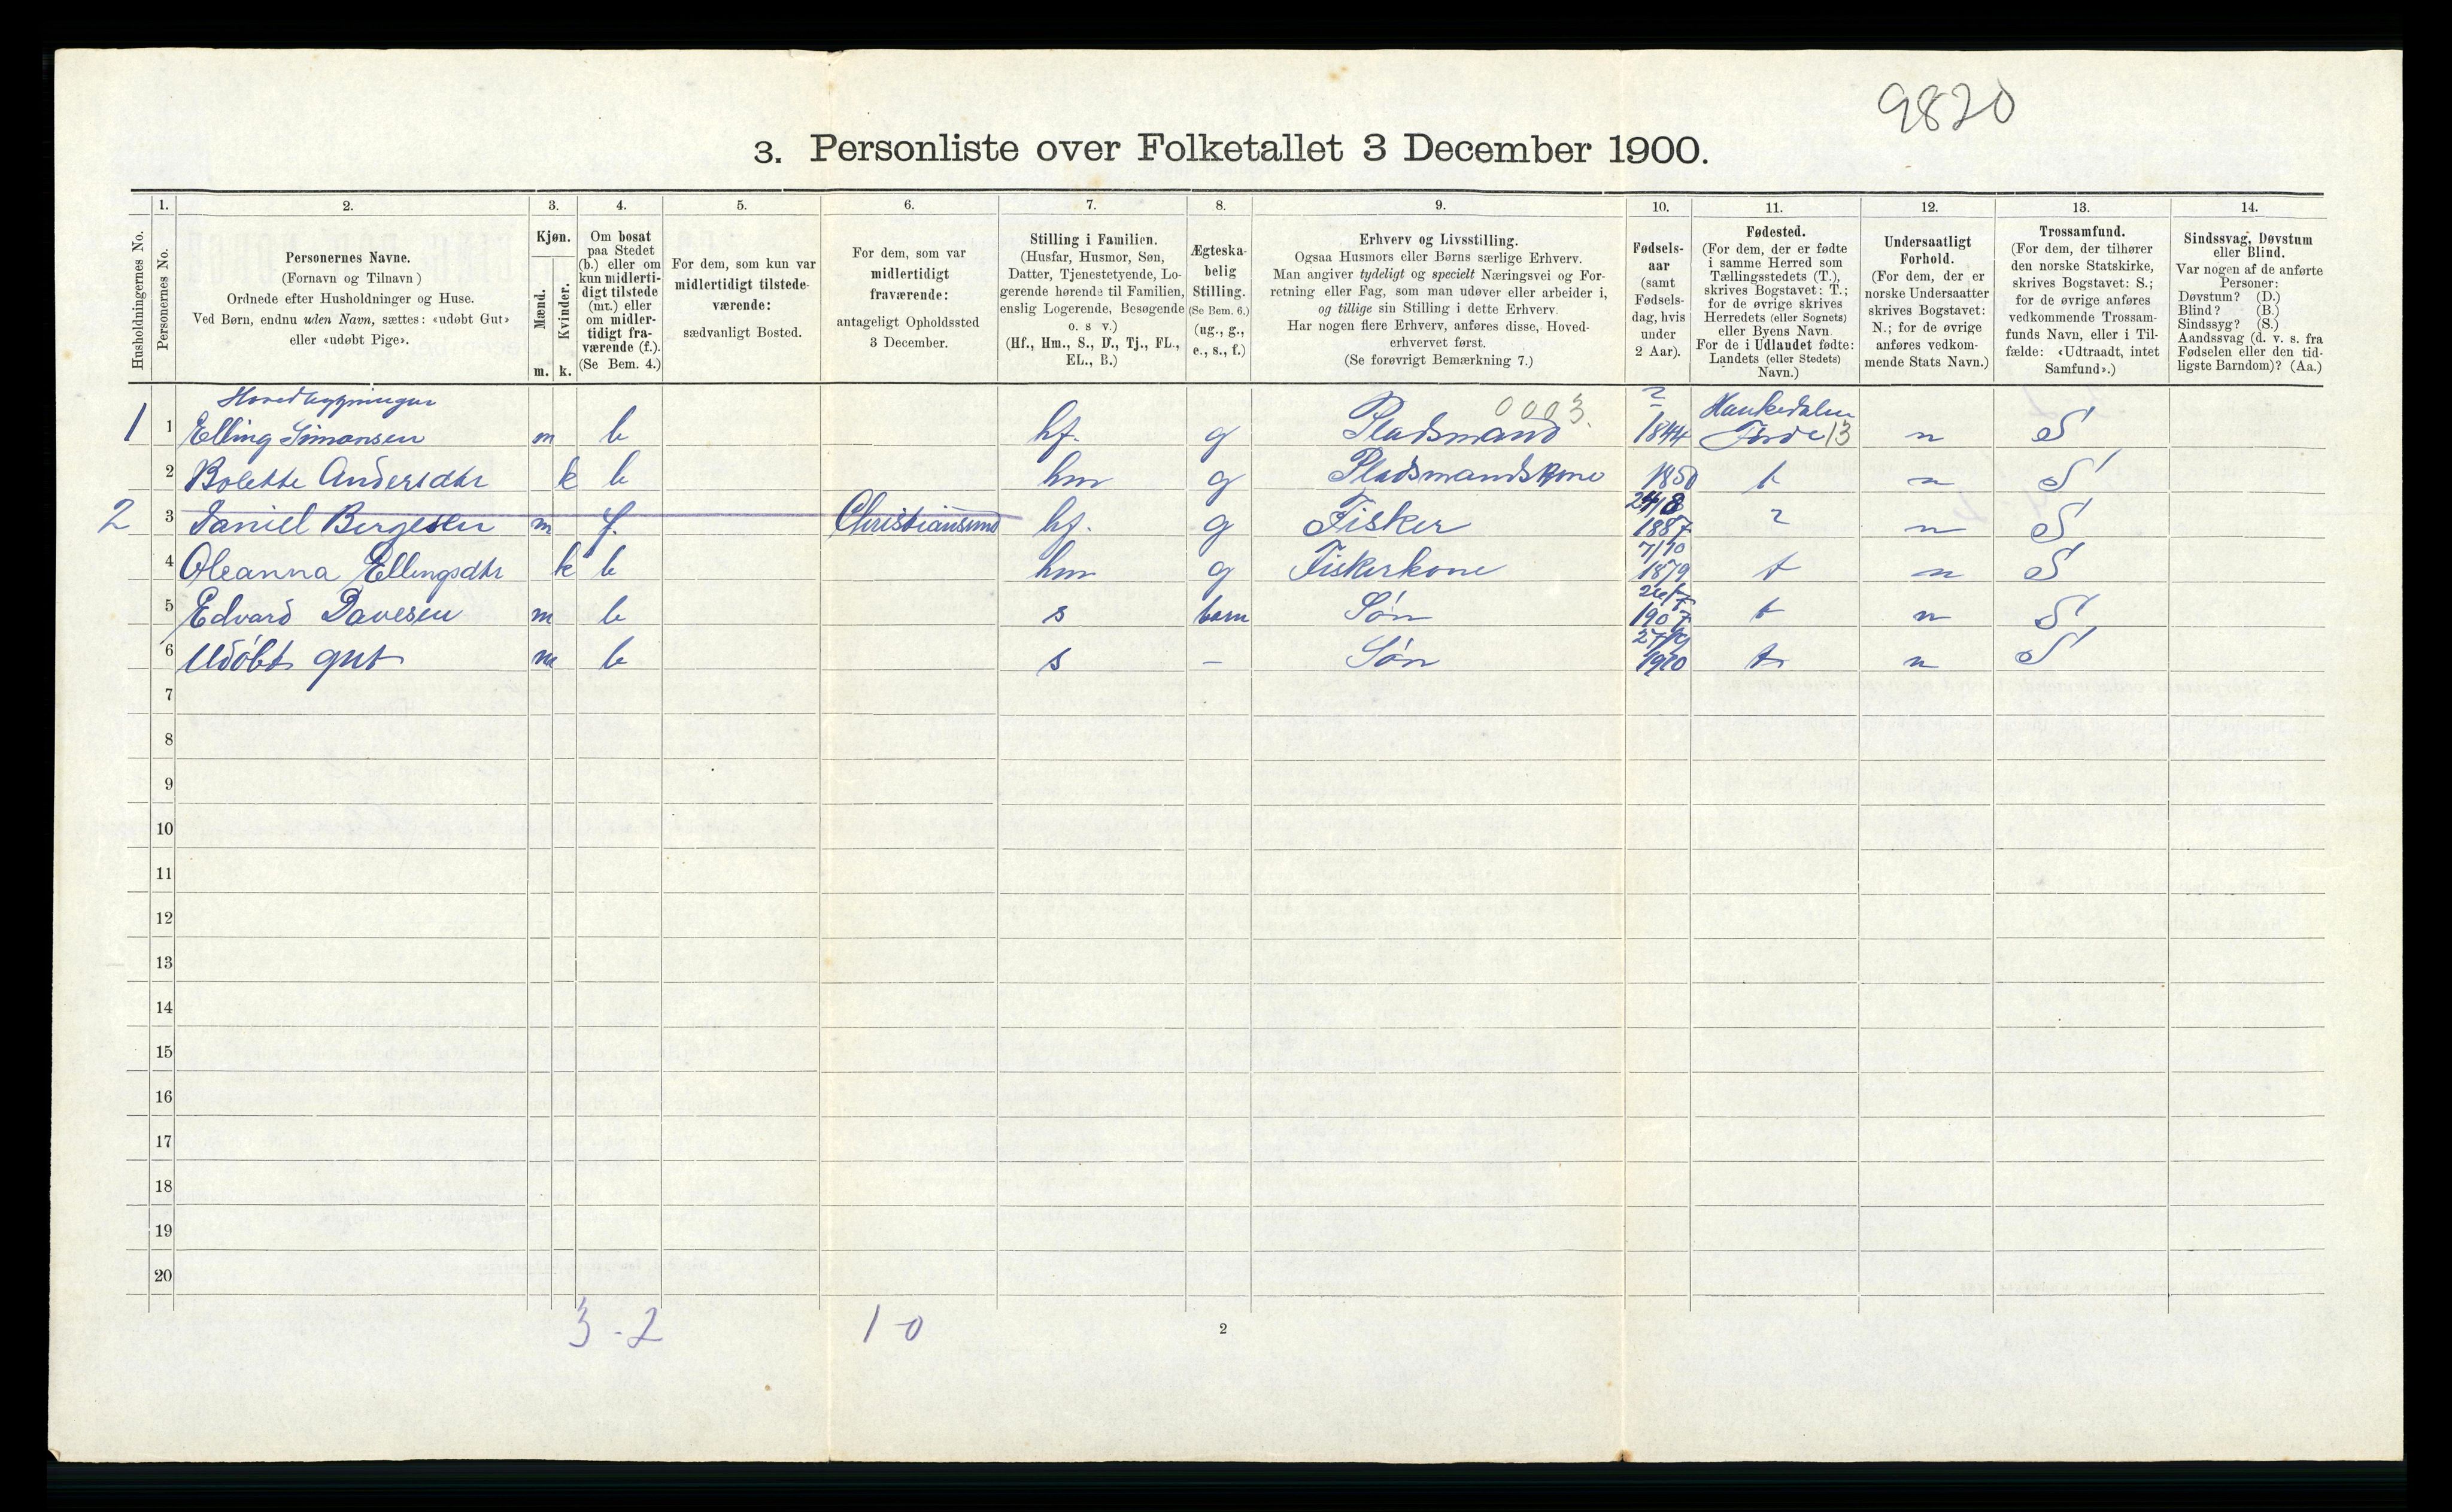 9820
3. Personliste over Folketallet 3 December 1900.
Husholdningernes No.
1.
Personernes No.
2.
Personernes Navne.
(Fornavn og Tilnavn)
Ordnede efter Husholdninger og Huse.
Ved Børn, endnu uden Navn, sættes: «udøbt Gut»
eller «udøbt Pige».
3.
Kjøn.
Mænd.
Kvinder.
m. k.
4.
Om bosat
paa Stedet
(b.) eller om
kun midlerti-
digt tilstede
(mt.) eller
om midler-
tidigt fra-
værende (f.).
(Se Bem. 4.)
5.
For dem, som kun var
midlertidigt tilstede-
værende:
sædvanligt Bosted.
6.
For dem, som var
midlertidigt
fraværende:
antageligt Opholdssted
3 December.
7.
Stilling i Familien.
(Husfar, Husmor, Søn,
Datter, Tjenestetyende, Lo-
gerende hørende til Familien,
enslig Logerende, Besøgende
o. s v.)
(Hf., Hm., S., D., Tj., FL.,
EL., B.)
8.
Ægteska-
belig
Stilling.
(Se Bem. 6.)
(ug., g.,
e., s., f.)
9.
Erhverv og Livsstilling.
Ogsaa Husmors eller Børns særlige Erhverv.
Man angiver tydeligt og specielt Næringsvei og For-
retning eller Fag, som man udøver eller arbeider i,
og tillige sin Stilling i dette Erhverv.
Har nogen flere Erhverv, anføres disse, Hoved-
erhvervet først.
(Se forøvrigt Bemærkning 7.)
10.
Fødsels-
aar
(samt
Fødsels-
dag, hvis
under
2 Aar).
11.
Fødested.
(For dem, der er fødte
i samme Herred som
Tællingsstedets (T.),
skrives Bogstavet: T.;
for de øvrige skrives
Herredets (eller Sognets)
eller Byens Navn.
For de i Udlandet fødte:
Landets (eller Stedets)
Navn.)
12.
Undersaatligt
Forhold.
(For dem, der er
norske Undersaatter
skrives Bogstavet:
N.; for de øvrige
anføres vedkom-
mende Stats Navn.)
13.
Trossamfund.
(For dem, der tilhører
den norske Statskirke,
skrives Bogstavet: S.;
for de øvrige anføres
vedkommende Trossam-
funds Navn, eller i Til-
fælde: «Udtraadt, intet
Samfund».)
14.
Sindssvag, Døvstum
eller Blind.
Var nogen af de anførte
Personer:
Døvstum? (D.)
Blind? (B.)
Sindssyg? (S.)
Aandssvag (d. v. s. fra
Fødselen eller den tid-
ligste Barndom)? (Aa.)
Hovedbygningen 0003. Haukedalen
1 1 Elling Simonsen m b hf. g Pladsmand 1844 Førde 13 n S
2 Bolette Andersdtr k b hm g Pladsmandskone 1850 t n S
2 3 Daniel Bergesen m f. Christiansund hf. g Fisker n S
4 Oleanna Ellingsdtr k b hm g Fiskerkone 7/10 1879 t n S
5 Edvard Davesen m b s barn Søn t n S
6 Udøbt gut m b s – Søn t n S
7
8
9
10
11
12
13
14
15
16
17
18
19
20
3 - 2 1 - 0
2